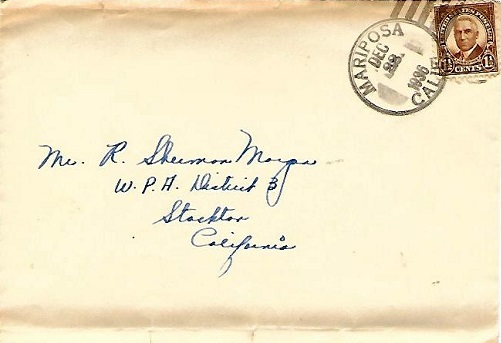 MARIPOSA
DEC
1936
CALIF.
UNITED STATES POSTAGE
1½ CENTS 1½
Mr. R. Sherman Morgan
W.P.A. District 3
Stockton
California